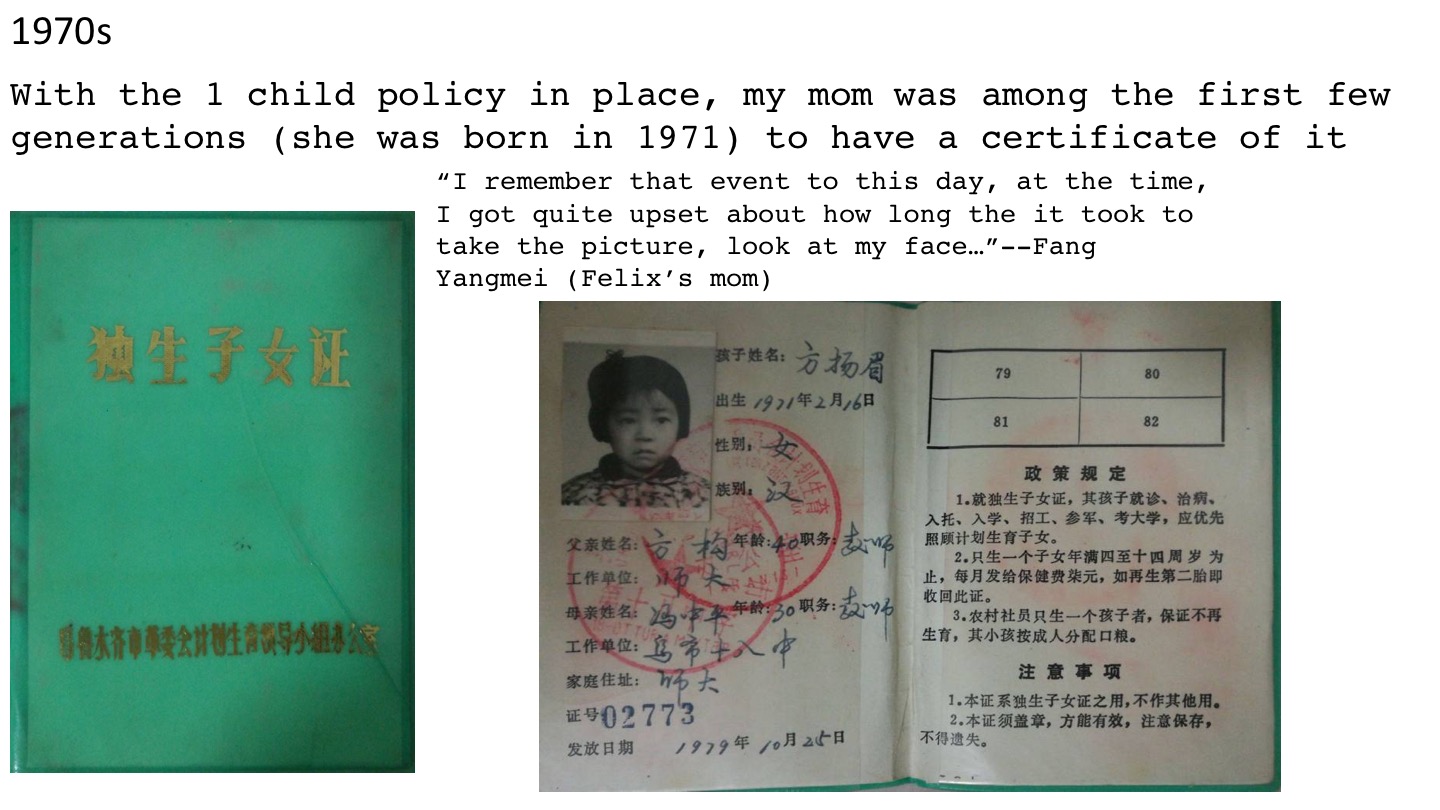 1970s
With the 1 child policy in place, my mom was among the first few
generations (she was born in 1971) to have a certificate of it
“I remember that event to this day, at the time,
I got quite upset about how long the it took to
take the picture, look at my face…”--Fang
Yangmei (Felix’s mom)
独生子女证
乌鲁木齐市革委会计划生育领导小组办公室
孩子姓名: 方扬眉
出生 1971年2月16日
性别: 女
族别: 汉
父亲姓名: 方 构 年龄: 40 职务: 教师
工作单位: 师大
母亲姓名: 冯中平 年龄: 30 职务: 教师
工作单位: 乌市十八中
家庭住址: 师大
证号02773
发放日期 1979年10月25日
79 80
81 82
政策规定
1.就独生子女证，其孩子就诊、治病、
入托、入学、招工、参军、考大学，应优先
照顾计划生育子女。
2.只生一个子女年满四至十四周岁为
止，每月发给保健费柒元，如再生第二胎即
收回此证。
3.农村社员只生一个孩子者，保证不再
生育，其小孩按成人分配口粮。
注意事项
1.本证系独生子女证之用，不作其他用。
2.本证须盖章，方能有效，注意保存，
不得遗失。